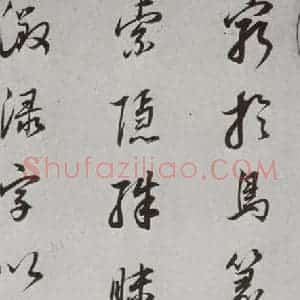 窮於鳥篆
索隱殊昧
渌字以
Shufaziliao.COM